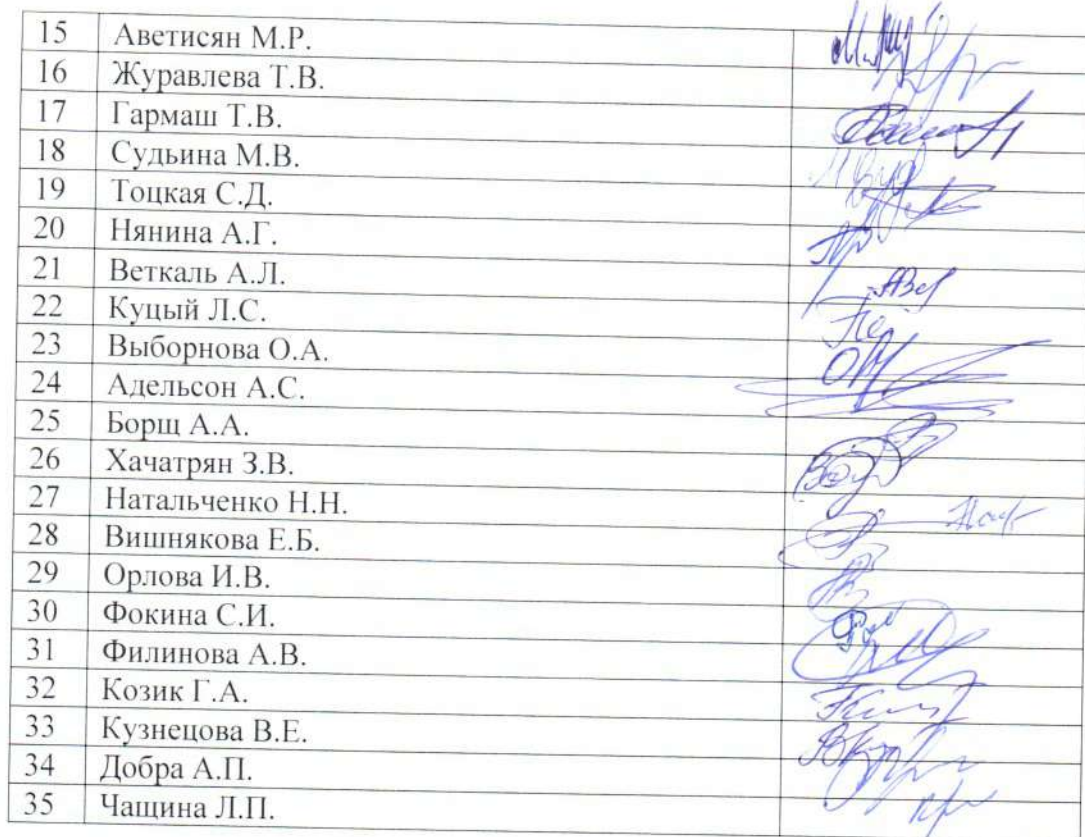 15 Аветисян М.Р.
16 Журавлева Т.В.
17 Гармаш Т.В.
18 Судьина М.В.
19 Тоцкая С.Д.
20 Нянина А.Г.
21 Веткаль А.Л.
22 Куцый Л.С.
23 Выборнова О.А.
24 Адельсон А.С.
25 Борщ А.А.
26 Хачатрян З.В.
27 Натальченко Н.Н.
28 Вишнякова Е.Б.
29 Орлова И.В.
30 Фокина С.И.
31 Филинова А.В.
32 Козик Г.А.
33 Кузнецова В.Е.
34 Добра А.П.
35 Чащина Л.П.